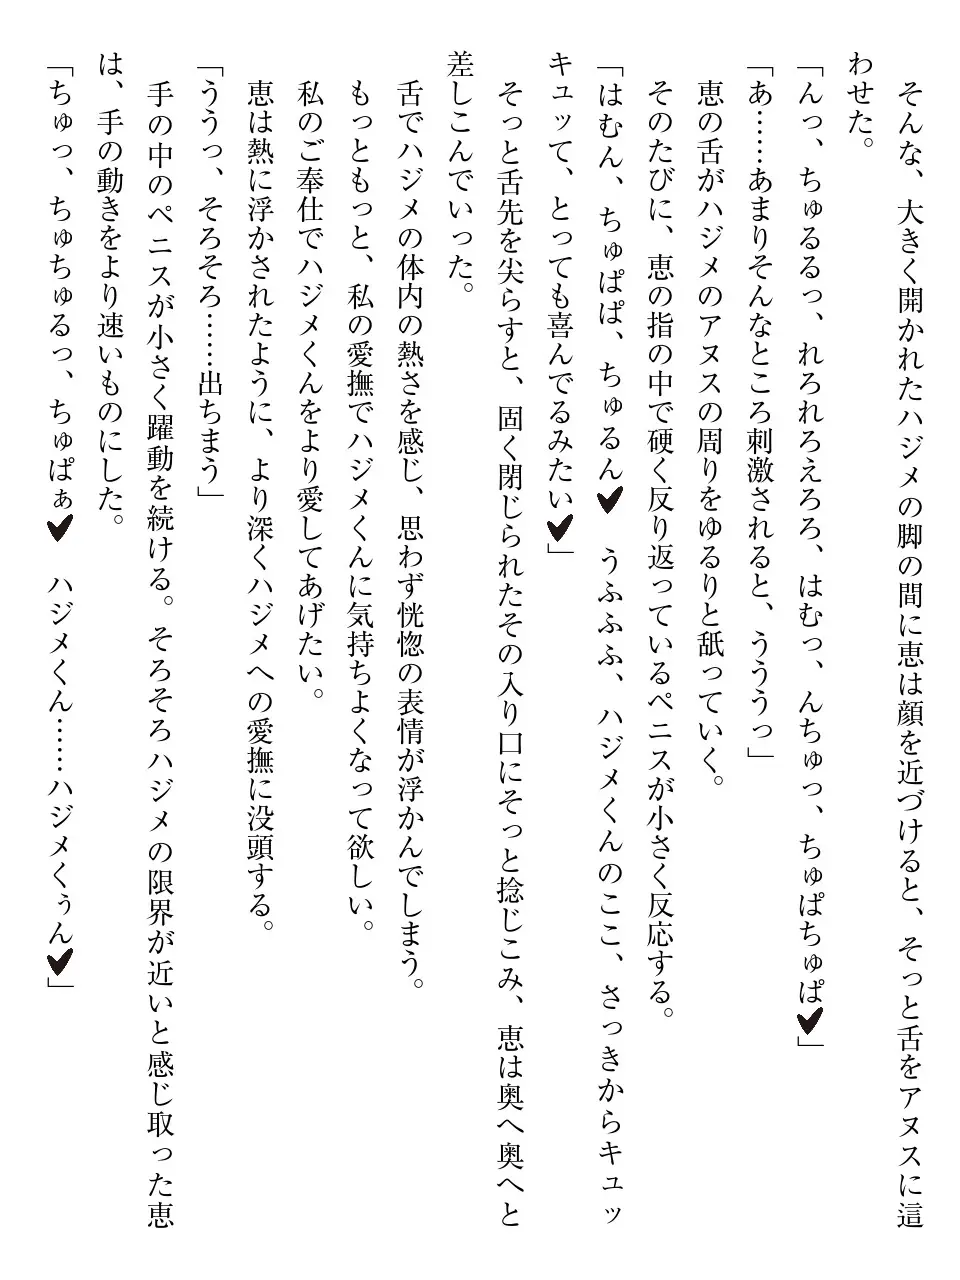 そんな、大きく開かれたハジメの脚の間に恵は顔を近づけると、そっと舌をアヌスに這
わせた。
「んっ、ちゅるるっ、れろれろえろろ、はむっ、んちゅっ、ちゅぱちゅぱ♥」
「あ……あまりそんなところ刺激されると、うううっ」
恵の舌がハジメのアヌスの周りをゆるりと舐っていく。
そのたびに、恵の指の中で硬く反り返っているペニスが小さく反応する。
「はむん、ちゅぱぱ、ちゅるん♥　うふふふ、ハジメくんのここ、さっきからキュッ
キュッて、とっても喜んでるみたい♥」
そっと舌先を尖らすと、固く閉じられたその入り口にそっと捻じこみ、恵は奥へ奥へと
差しこんでいった。
舌でハジメの体内の熱さを感じ、思わず恍惚の表情が浮かんでしまう。
もっともっと、私の愛撫でハジメくんに気持ちよくなって欲しい。
私のご奉仕でハジメくんをより愛してあげたい。
恵は熱に浮かされたように、より深くハジメへの愛撫に没頭する。
「ううっ、そろそろ……出ちまう」
手の中のペニスが小さく躍動を続ける。そろそろハジメの限界が近いと感じ取った恵
は、手の動きをより速いものにした。
「ちゅっ、ちゅちゅるっ、ちゅぱぁ♥　ハジメくん……ハジメくぅん♥」